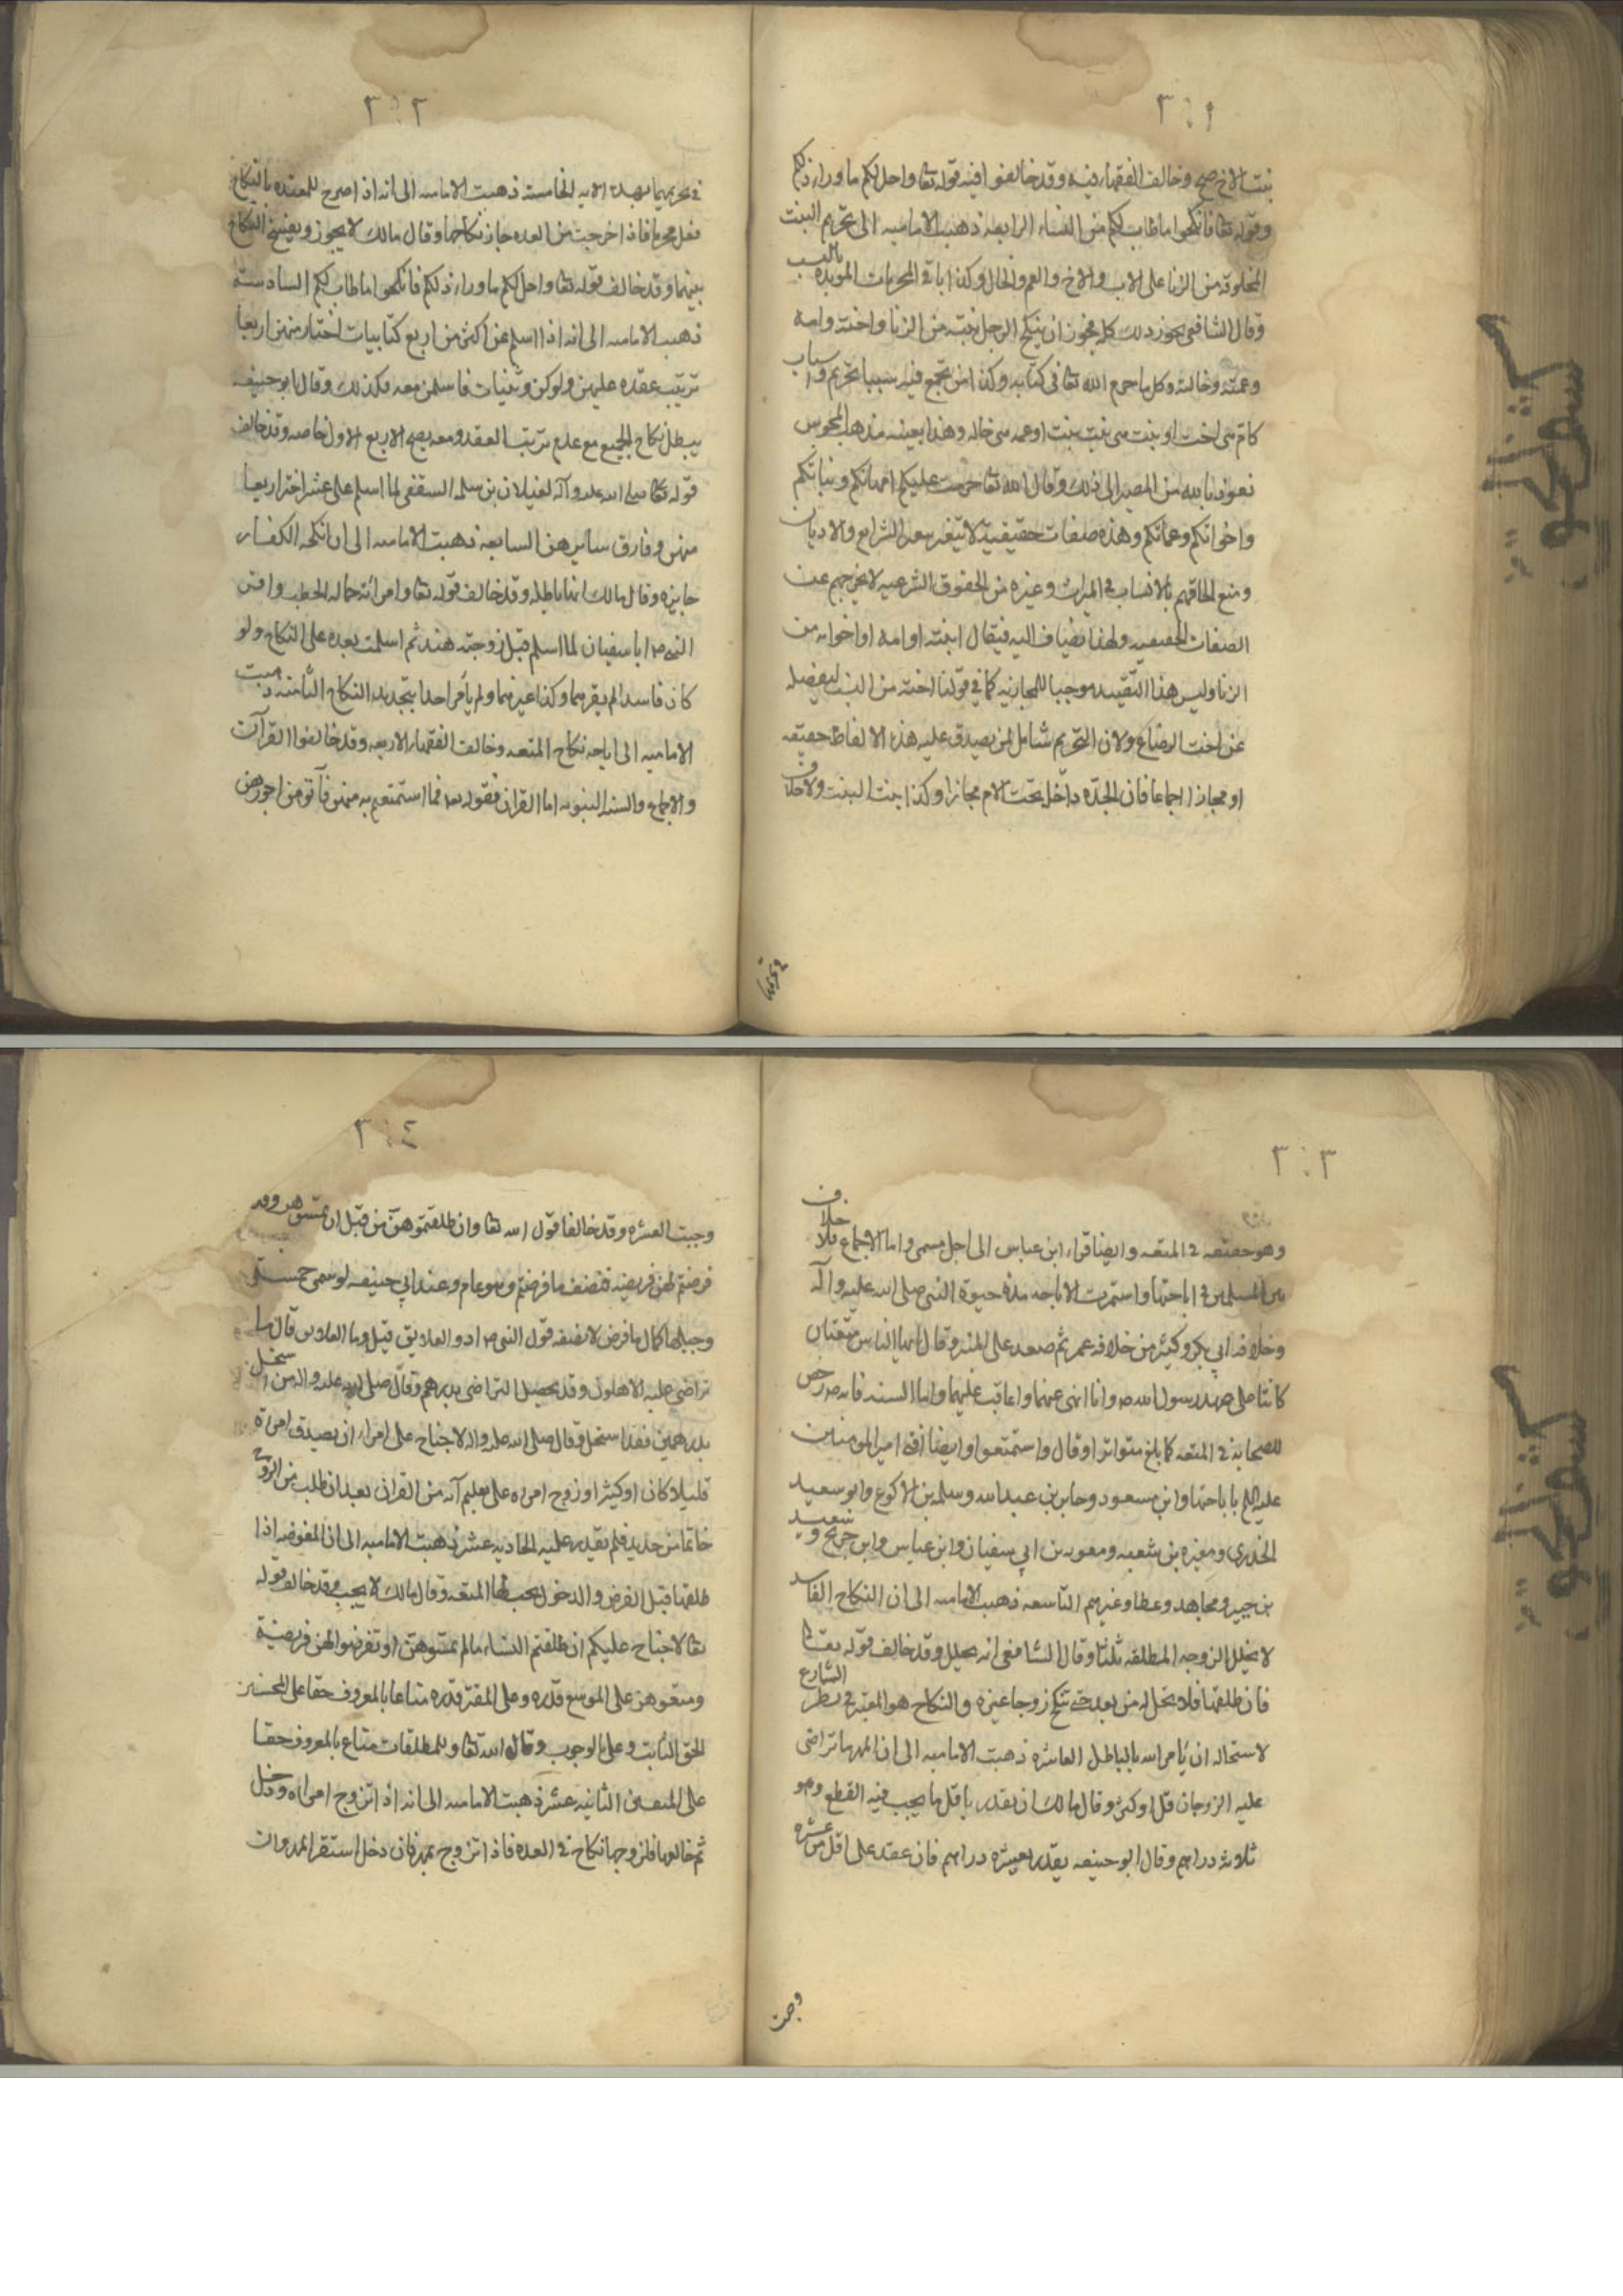 ٣٠١
بنت الاخ صح وخالف الفقهاء فيه وقد خالفوا فيه قوله تعا واحل لكم ما وراء ذلكم
وقوله تعا فانكحوا ما طاب لكم من النساء الرابعة ذهبت الامامية الى تحريم البنت
المخلوقة من الزنا على الاب والاخ والعم والخال وكذا باقي المحرمات المؤبدة بالنسب
وقال الشافعي يجوز ذلك كله فيجوز ان ينكح الرجل بنته من الزنا واخته وامه
وعمته وخالته وكل ما حرم الله تعا في كتابه وكذا من يجمع فيه سببا تحريم واسباب
كام هي اخت او بنت هي بنت بنت او عمه هي خاله وهذا بعينه مذهب المجوس
نعوذ بالله من المصير الى ذلك وقال الله تعا حرمت عليكم امهاتكم وبناتكم
واخواتكم وعماتكم وهذه صفات حقيقية لا تتغير بتغير الشرايع والاديان
ومنع الحاقهم بالانساب في الميراث وغيره من الحقوق الشرعيه لا يخرجهم عن
الصفات الحقيقيه ولهذا يضاف اليه فيقال ابنته او امه او اخواته من
الزنا وليس هذا التقييد موجبا للمجازيه كما في قولنا اخته من النسب لتفصله
عن اخت الرضاع ولان التحريم شامل لمن يصدق عليه هذه الالفاظ حقيقه
او مجازا اجماعا فان الجدّه داخل تحت الام مجازا وكذا بنت البنت ولا خلاف
في تحريمها
٣٠٢
في تحريمهما بهذه الايه الخامسة ذهبت الاماميه الى انه اذا صرح للمعتده بالنكاح
فعل محرما فاذا خرجت من العده جاز نكاحها وقال مالك لا يجوز ويفسخ النكاح
بينهما وقد خالف قوله تعا واحل لكم ما وراء ذلكم فانكحوا ما طاب لكم السادسة
ذهبت الاماميه الى انه اذا اسلم عن اكثر من اربع كتابيات اختار منهن اربعا
ترتب عقده عليهن ولو كن وثنيات فاسلمن معه فكذلك وقال ابو حنيفه
يبطل نكاح الجميع مع عدم ترتب العقد ومعه يصح الاربع الاول خاصه وقد خالف
قوله صلى الله عليه وآله لغيلان بن سلمه الثقفي لما اسلم على عشر اختر اربعا
منهن وفارق سايرهن السابعه ذهبت الاماميه الى ان انكحه الكفار
جايزه وقال مالك انها باطله وقد خالف قوله تعا وامرأته حماله الحطب واقر
النبي ص ابا سفيان لما اسلم قبل زوجته هند ثم اسلمت بعده على النكاح ولو
كان فاسدا لم يقرهما وكذا غيرهما ولم يأمر احدا بتجديد النكاح الثامنه ذهبت
الاماميه الى اباحه نكاح المتعه وخالف الفقهاء الاربعه وقد خالفوا القرآن
والاجماع والسنه النبويه اما القران فقوله تعا فما استمتعتم به منهن فآتوهن اجورهن
٣٠٣
وهو حقيقه في المتعه وايضا قراءه ابن عباس الى اجل مسمى واما الاجماع فلا خلاف
بين المسلمين في اباحتها واستمرت الاباحه مدة حيوة النبي صلى الله عليه وآله
وخلافه ابي بكر وكثير من خلافه عمر ثم صعد على المنبر وقال ايها الناس متعتان
كانتا على عهد رسول الله ص وانا انهى عنهما واعاقب عليهما واما السنه فانه ص رخص
للصحابه في المتعه كما بلغ متواترا وقال واستمتعوا وايضا افتى امير المومنين
عليه السلم باباحتها وابن مسعود وجابر بن عبدالله وسلمه بن الاكوع وابو سعيد
الخدري ومغيره بن شعبه ومعويه بن ابي سفيان وابن عباس وابن جريح وسعيد
بن جبير ومجاهد وعطا وغيرهم التاسعه ذهبت الاماميه الى ان النكاح الفاسد
لا يحلل الزوجه المطلقه ثلثا وقال الشافعي انه يحلل وقد خالف قوله تعا
فان طلقها فلا تحل له من بعد حتى تنكح زوجا غيره والنكاح هو المعتبر في نظر الشارع
لاستحاله ان يأمر الله بالباطل العاشره ذهبت الاماميه الى ان المهر ما تراضى
عليه الزوجان قل او كثر وقال مالك انه يقدر باقل ما يجب فيه القطع وهو
ثلاثه دراهم وقال ابو حنيفه يقدر بعشره دراهم فان عقد على اقل من عشره
وجبت
٣٠٤
وجبت العشره وقد خالفا قول الله تعا وان طلقتموهن من قبل ان تمسوهن وقد
فرضتم لهن فريضه فنصف ما فرضتم وهو عام وعند ابي حنيفه لو سمى خمسه
وجب لها كمال ما فرض لا نصفه قول النبي ص ادوا العلايق قيل وما العلايق قال ما
تراضى عليه الاهلون وقد يحصل التراضي بدرهم وقال صلى الله عليه واله من استحل
بدرهمين فقد استحل وقال صلى الله عليه واله لا جناح على امرء ان يصدق امراة
قليلا كان او كثيرا وزوج امراه على تعليم آيه من القران بعد ان طلب من الزوج
خاتما من حديد فلم يقدر عليه الحاديه عشر ذهبت الاماميه الى ان المفوضه اذا
طلقها قبل الفرض والدخول يجب لها المتعه وقال مالك لا يجب وقد خالف قوله
تعا لا جناح عليكم ان طلقتم النساء ما لم تمسوهن او تفرضوا لهن فريضة
ومتعوهن على الموسع قدره وعلى المقتر قدره متاعا بالمعروف حقا على المحسنين
الحق الثابت وعلى للوجوب وقال الله تعا وللمطلقات متاع بالمعروف حقا
على المتقين الثانيه عشر ذهبت الاماميه الى انه اذا تزوج امراه ودخل
ثم خالعها فلزوجها نكاح في العده فاذا تزوج بمهر فان دخل استقر المهر وان
كشف الحق